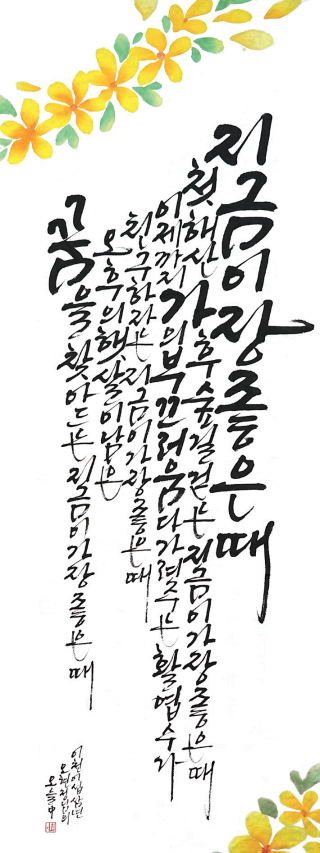 지금이가장좋은때
첫해산후숲길걷는지금이가장좋은때
어제까지의부끄러움다가려주는활엽수라
친구하자는지금이가장좋은때
오후의햇살이남은
꿈을찾아드는지금이가장좋은때
이천이십삼년
오현정님의